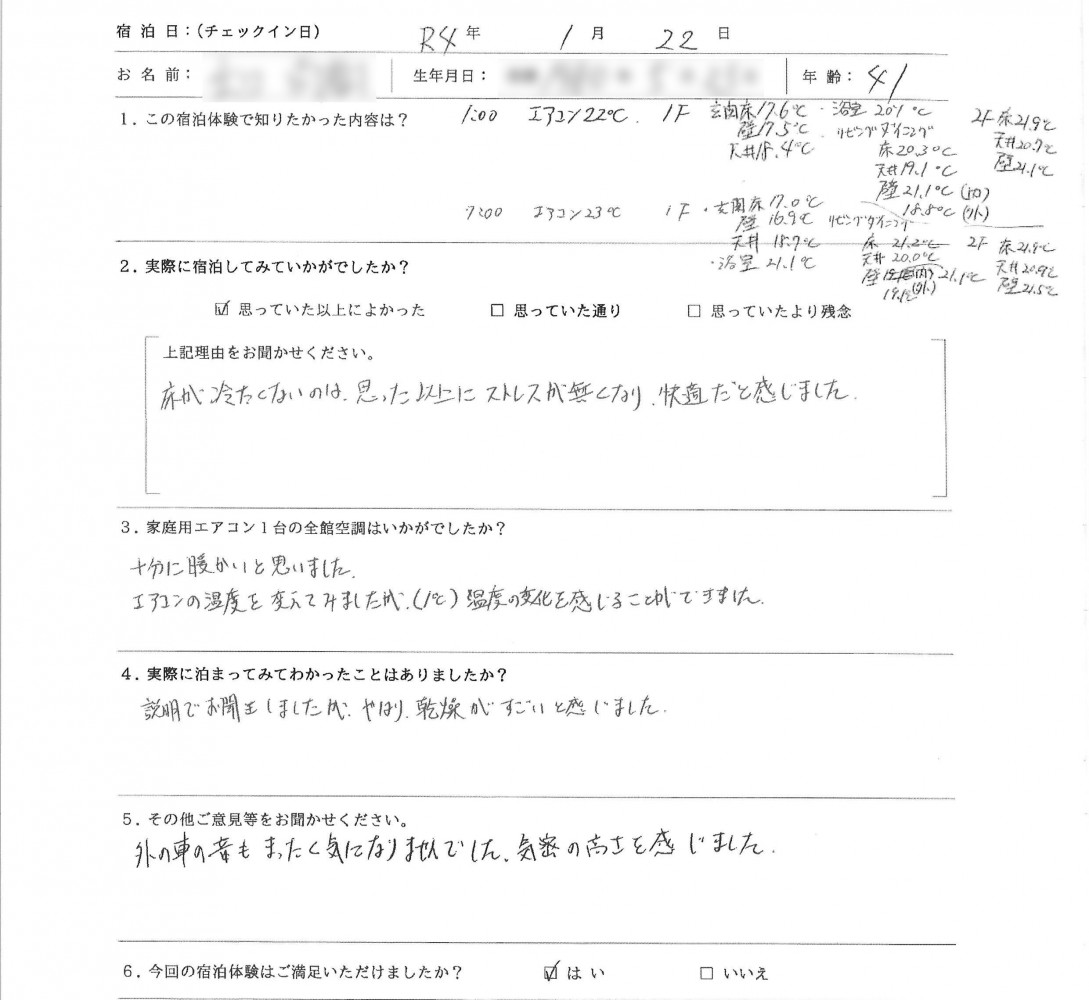 宿 泊 日：（チェックイン日） R4 年 1 月 22 日
お 名 前： 生年月日： 年 齢： 41
1．この宿泊体験で知りたかった内容は？
1:00 エアコン22℃. 1F 玄関床17.6℃ ・浴室 20.1℃ 2F 床21.9℃
壁17.5℃ リビングダイニング 天井20.7℃
天井18.4℃ 床20.3℃ 壁21.1℃
天井19.1℃
壁21.1℃(内)
18.8℃(外)
7:00 エアコン23℃ 1F ・玄関床17.0℃
壁16.9℃ リビングダイニング
天井 18.7℃ 床 21.2℃ 2F 床21.9℃
・浴室 21.1℃ 天井20.0℃ 天井20.9℃
壁 (内) 21.1℃ 壁21.5℃
(外)
2．実際に宿泊してみていかがでしたか？
☑ 思っていた以上によかった □ 思っていた通り □ 思っていたより残念
上記理由をお聞かせください。
床が冷たくないのは、思った以上にストレスが無くなり、快適だと感じました。
3．家庭用エアコン1台の全館空調はいかがでしたか？
十分に暖かいと思いました。
エアコンの温度を変えてみましたが、(1℃) 温度の変化を感じることができました。
4．実際に泊まってみてわかったことはありましたか？
説明でお聞きしましたが、やはり、乾燥がすごいと感じました。
5．その他ご意見等をお聞かせください。
外の車の音もまったく気になりませんでした、気密の高さを感じました。
6．今回の宿泊体験はご満足いただけましたか？ ☑ はい □ いいえ